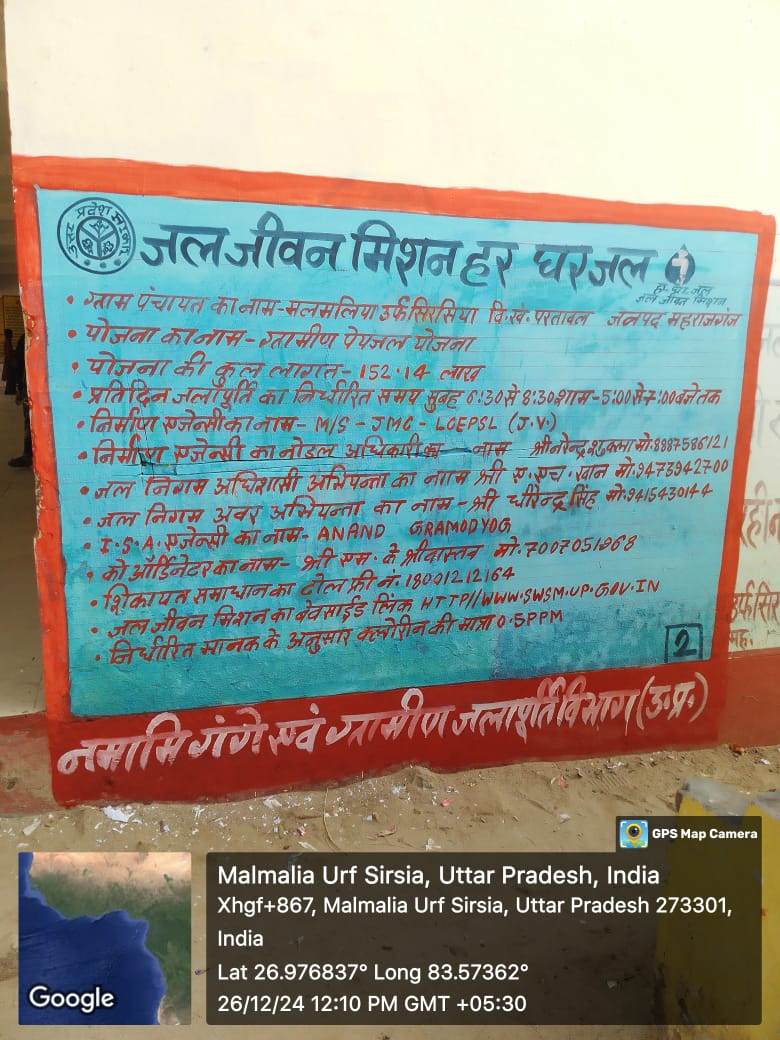 उत्तर प्रदेश सरकार
जल जीवन मिशन हर घर जल
हर घर जल
जल जीवन मिशन
• ग्राम पंचायत का नाम-मलमलिया उर्फ सिरसिया वि.खं.परतावल जनपद महराजगंज
• योजना का नाम- ग्रामीण पेयजल योजना
• योजना की कुल लागत- 152.14 लाख
• प्रतिदिन जलापूर्ति का निर्धारित समय सुबह 6:30 से 8:30 शाम-5:00 से 7:00 बजे तक
• निर्माण एजेन्सी का नाम- M/S - JMC - LCEPSL (J.V.)
• निर्माण एजेन्सी का नोडल अधिकारी का नाम श्री नरेन्द्र शुक्ला मो:8887586121
• जल निगम अधिशासी अभियन्ता का नाम श्री ए.एच.खान मो:9473942700
• जल निगम अवर अभियन्ता का नाम - श्री धीरेन्द्र सिंह मो:9415430144
• I.S.A. एजेन्सी का नाम- ANAND GRAMODYOG
• को ऑर्डिनेटर का नाम- श्री एम. के श्रीवास्तव मो:7007051968
• शिकायत समाधान का टोल फ्री नं. 18001212164
• जल जीवन मिशन का वेवसाईड लिंक HTTP//WWW.SWSM.UP.GOV.IN
• निर्धारित मानक के अनुसार क्लोरीन की मात्रा 0.5PPM
2
नमामि गंगे एवं ग्रामीण जलापूर्ति विभाग (उ.प्र.)
उर्फ सिर
GPS Map Camera
Malmalia Urf Sirsia, Uttar Pradesh, India
Xhgf+867, Malmalia Urf Sirsia, Uttar Pradesh 273301,
India
Lat 26.976837° Long 83.57362°
26/12/24 12:10 PM GMT +05:30
Google